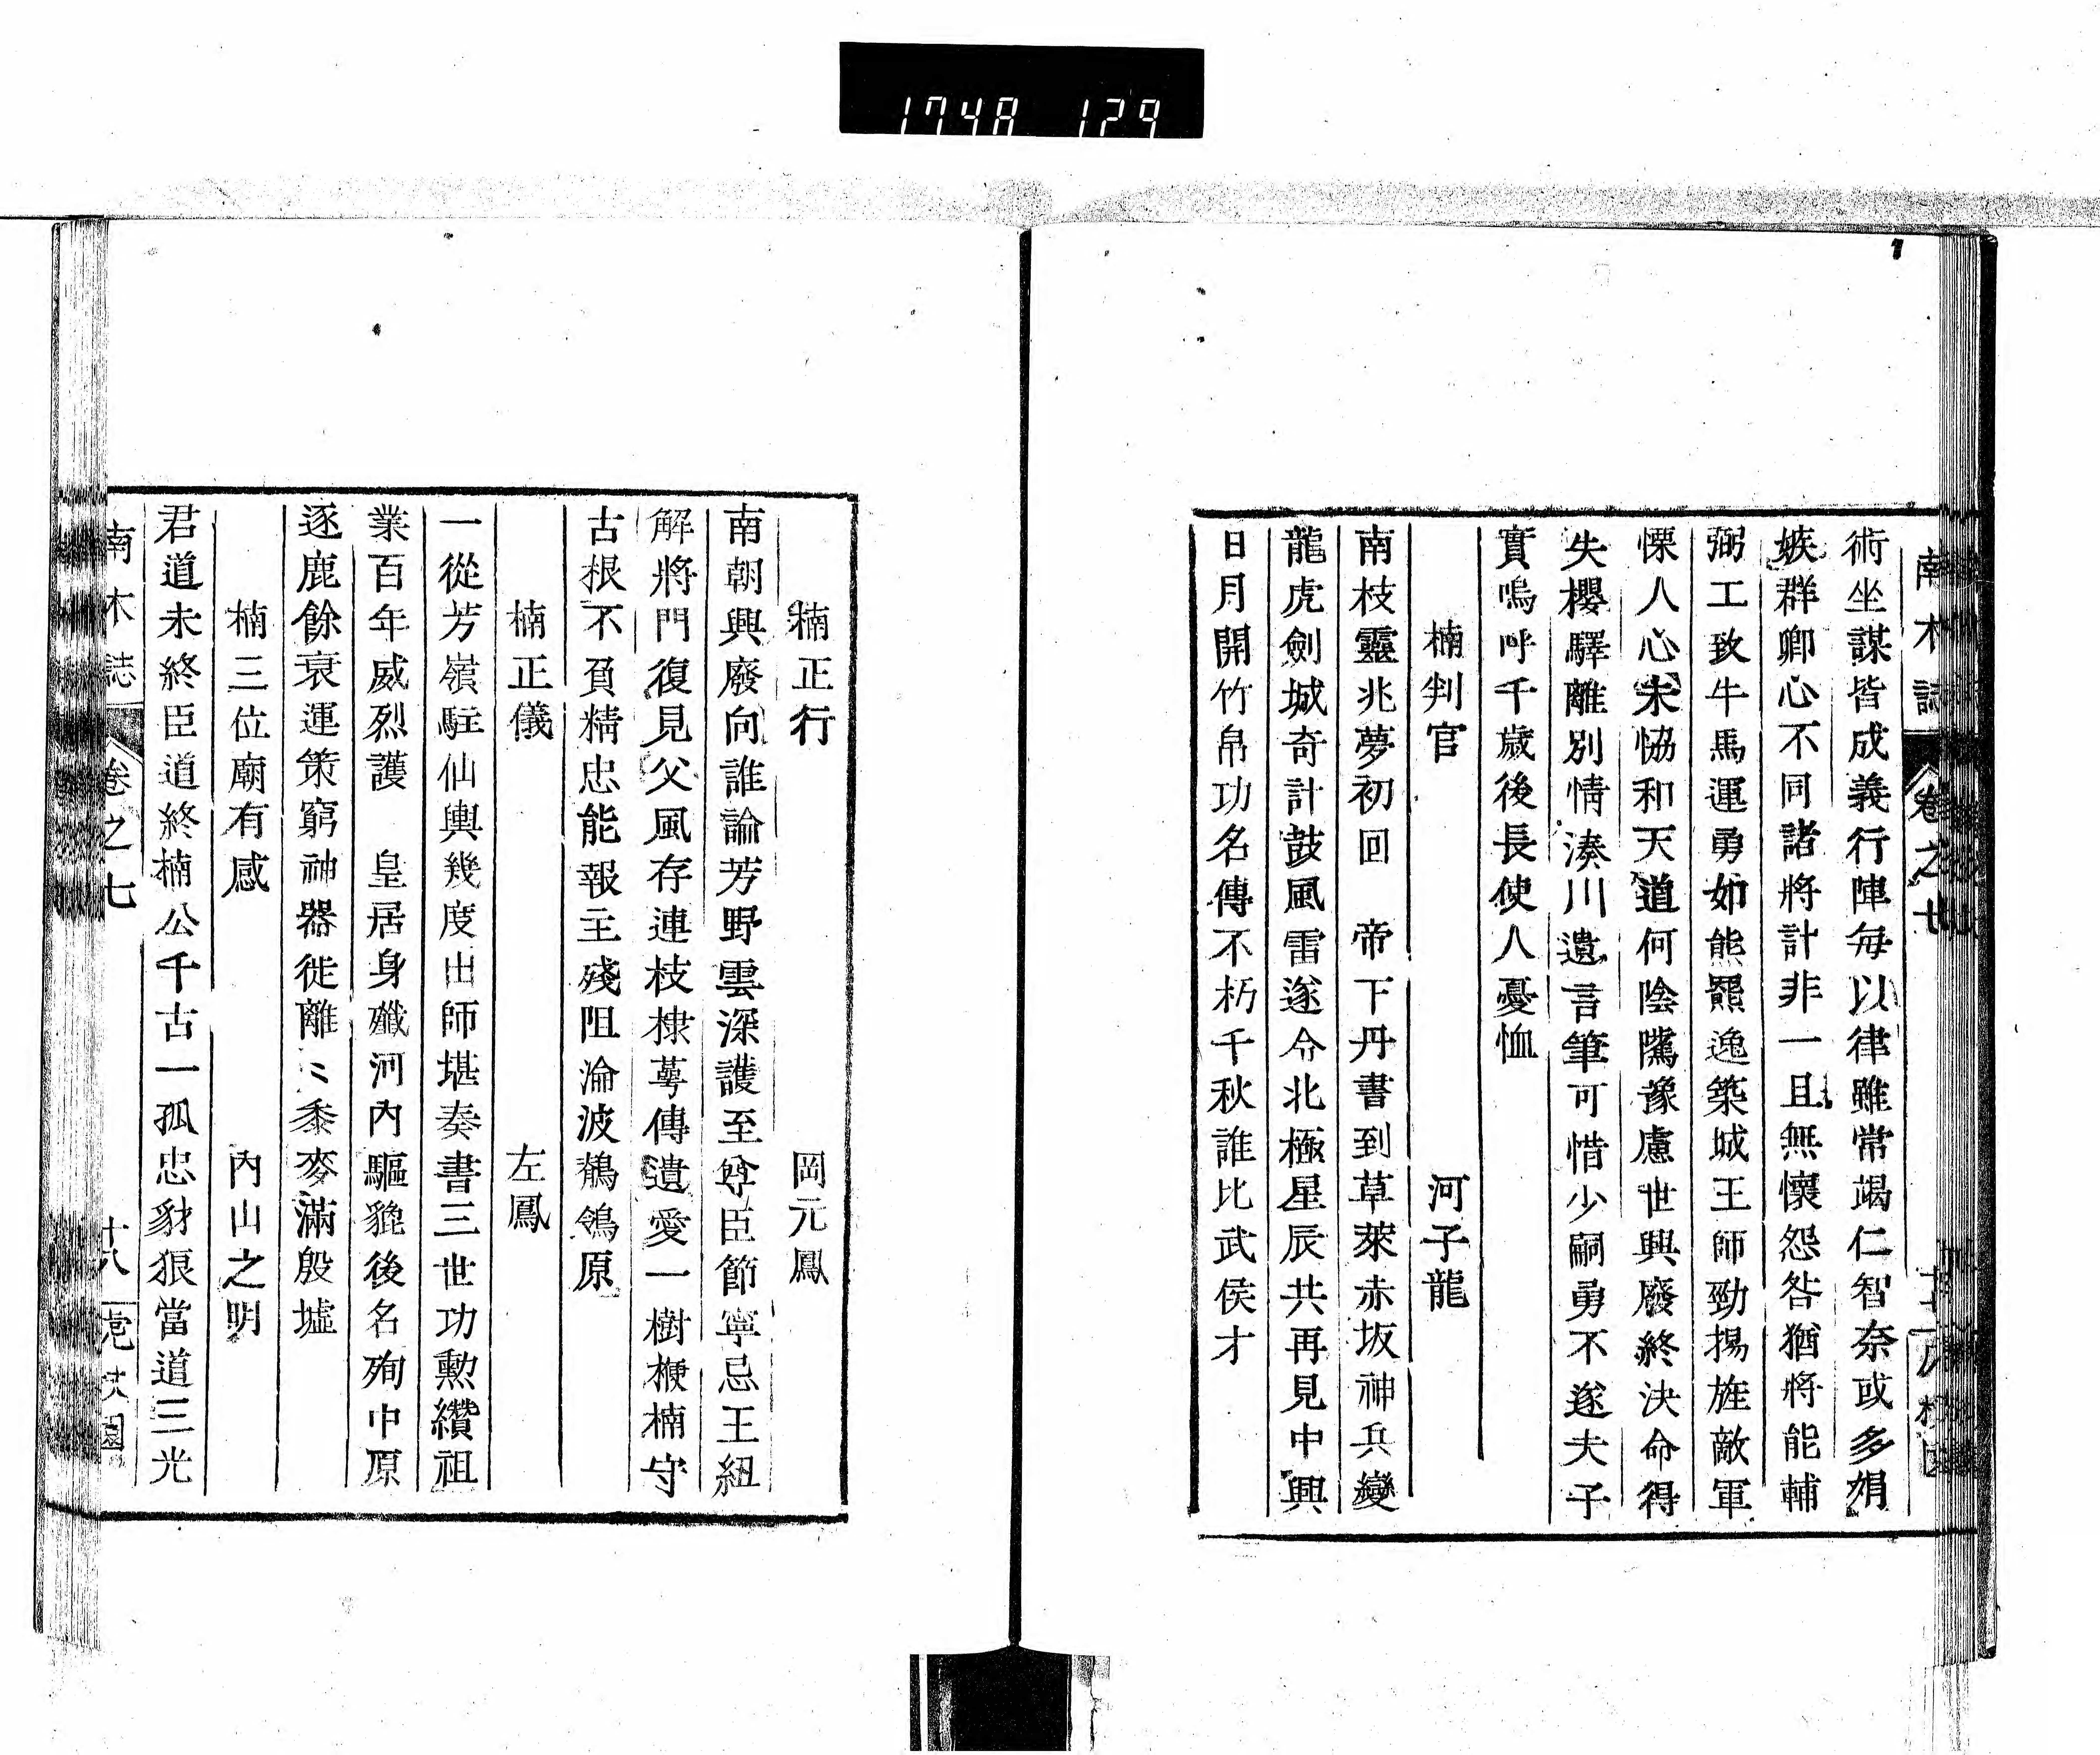 1748 129
南木誌 卷之七
術坐謀皆成義行陣每以律雖常竭仁智奈或多娟
嫉群卿心不同諸將計非一且無懷怨咎猶將能輔
弼工致牛馬運勇如熊羆逸築城王師勁揚旌敵軍
慄人心未恊和天道何陰隲豫慮世興廢終決命得
失櫻驛離別情湊川遺言筆可惜少嗣勇不遂夫子
實嗚呼千歲後長使人憂恤
楠判官 河子龍
南枝靈兆夢初回 帝下丹書到草萊赤坂神兵變
龍虎劍城奇計鼓風雷遂令北極星辰共再見中興
日月開竹帛功名傳不朽千秋誰比武侯才
楠正行 岡元鳳
南朝興廢向誰論芳野雲深護至尊臣節寧忘王紐
解將門復見父風存連枝棣萼傳遺愛一樹楩楠守
古根不負精忠能報主殘阻淪波鶺鴒原
楠正儀 左鳳
一從芳嶺駐仙輿幾度出師堪奏書三世功勳纘祖
業百年威烈護 皇居身殲河內驅貔後名殉中原
逐鹿餘衰運策窮神器徙離〻黍麥滿殷墟
楠三位廟有感 內山之明
君道未終臣道終楠公千古一孤忠豺狼當道三光
南木誌 卷之七 十八